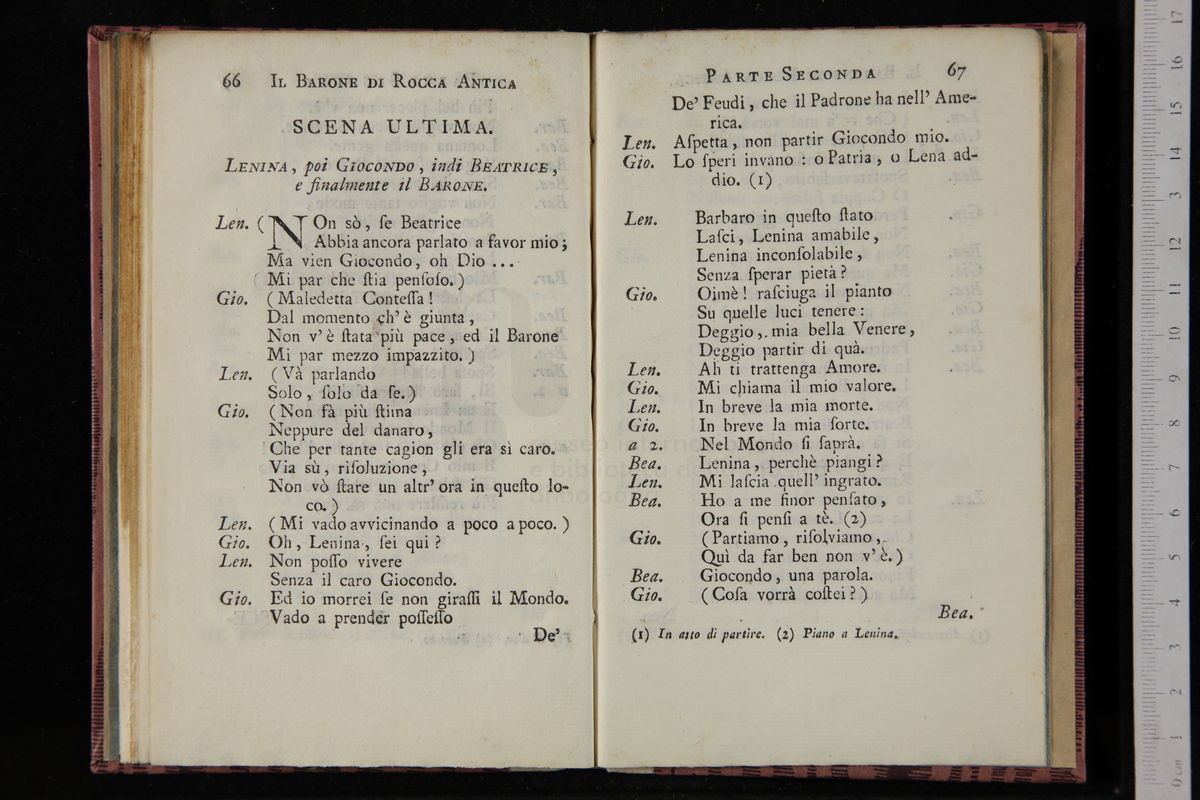 66 IL BARONE DI ROCCA ANTICA
SCENA ULTIMA.
LENINA, poi GIOCONDO, indi BEATRICE,
e finalmente il BARONE.
Len. (NOn sò, ſe Beatrice
Abbia ancora parlato a favor mio;
Ma vien Giocondo, oh Dio ...
(Mi par che ſtia penſoſo.)
Gio. (Maledetta Conteſſa!
Dal momento ch' è giunta,
Non v' è ſtata più pace, ed il Barone
Mi par mezzo impazzito.)
Len. (Và parlando
Solo, ſolo da ſe.)
Gio. (Non fà più ſtima
Neppure del danaro,
Che per tante cagion gli era sì caro.
Via sù, riſoluzione,
Non vò ſtare un altr' ora in queſto lo-
co.)
Len. (Mi vado avvicinando a poco a poco.)
Gio. Oh, Lenina, ſei qui?
Len. Non poſſo vivere
Senza il caro Giocondo.
Gio. Ed io morrei ſe non giraſſi il Mondo.
Vado a prender poſſeſſo
De'
PARTE SECONDA 67
De' Feudi, che il Padrone ha nell' Ame-
rica.
Len. Aſpetta, non partir Giocondo mio.
Gio. Lo ſperi invano: o Patria, o Lena ad-
dio. (1)
Len. Barbaro in queſto ſtato
Laſci, Lenina amabile,
Lenina inconſolabile,
Senza ſperar pietà?
Gio. Oimè! raſciuga il pianto
Su quelle luci tenere:
Deggio, mia bella Venere,
Deggio partir di quà.
Len. Ah ti trattenga Amore.
Gio. Mi chiama il mio valore.
Len. In breve la mia morte.
Gio. In breve la mia ſorte.
a 2. Nel Mondo ſi ſaprà.
Bea. Lenina, perchè piangi?
Len. Mi laſcia quell' ingrato.
Bea. Ho a me finor penſato,
Ora ſi penſi a tè. (2)
Gio. (Partiamo, riſolviamo,
Quì da far ben non v' è.)
Bea. Giocondo, una parola.
Gio. (Coſa vorrà coſtei?)
Bea.
(1) In atto di partire. (2) Piano a Lenina.